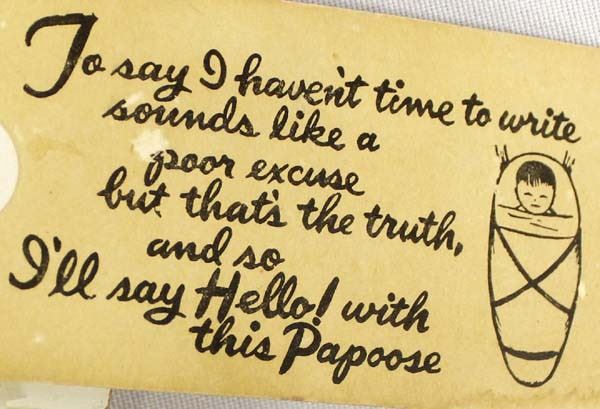 To say I haven't time to write
sounds like a
poor excuse
but that's the truth,
and so
I'll say Hello! with
this Papoose